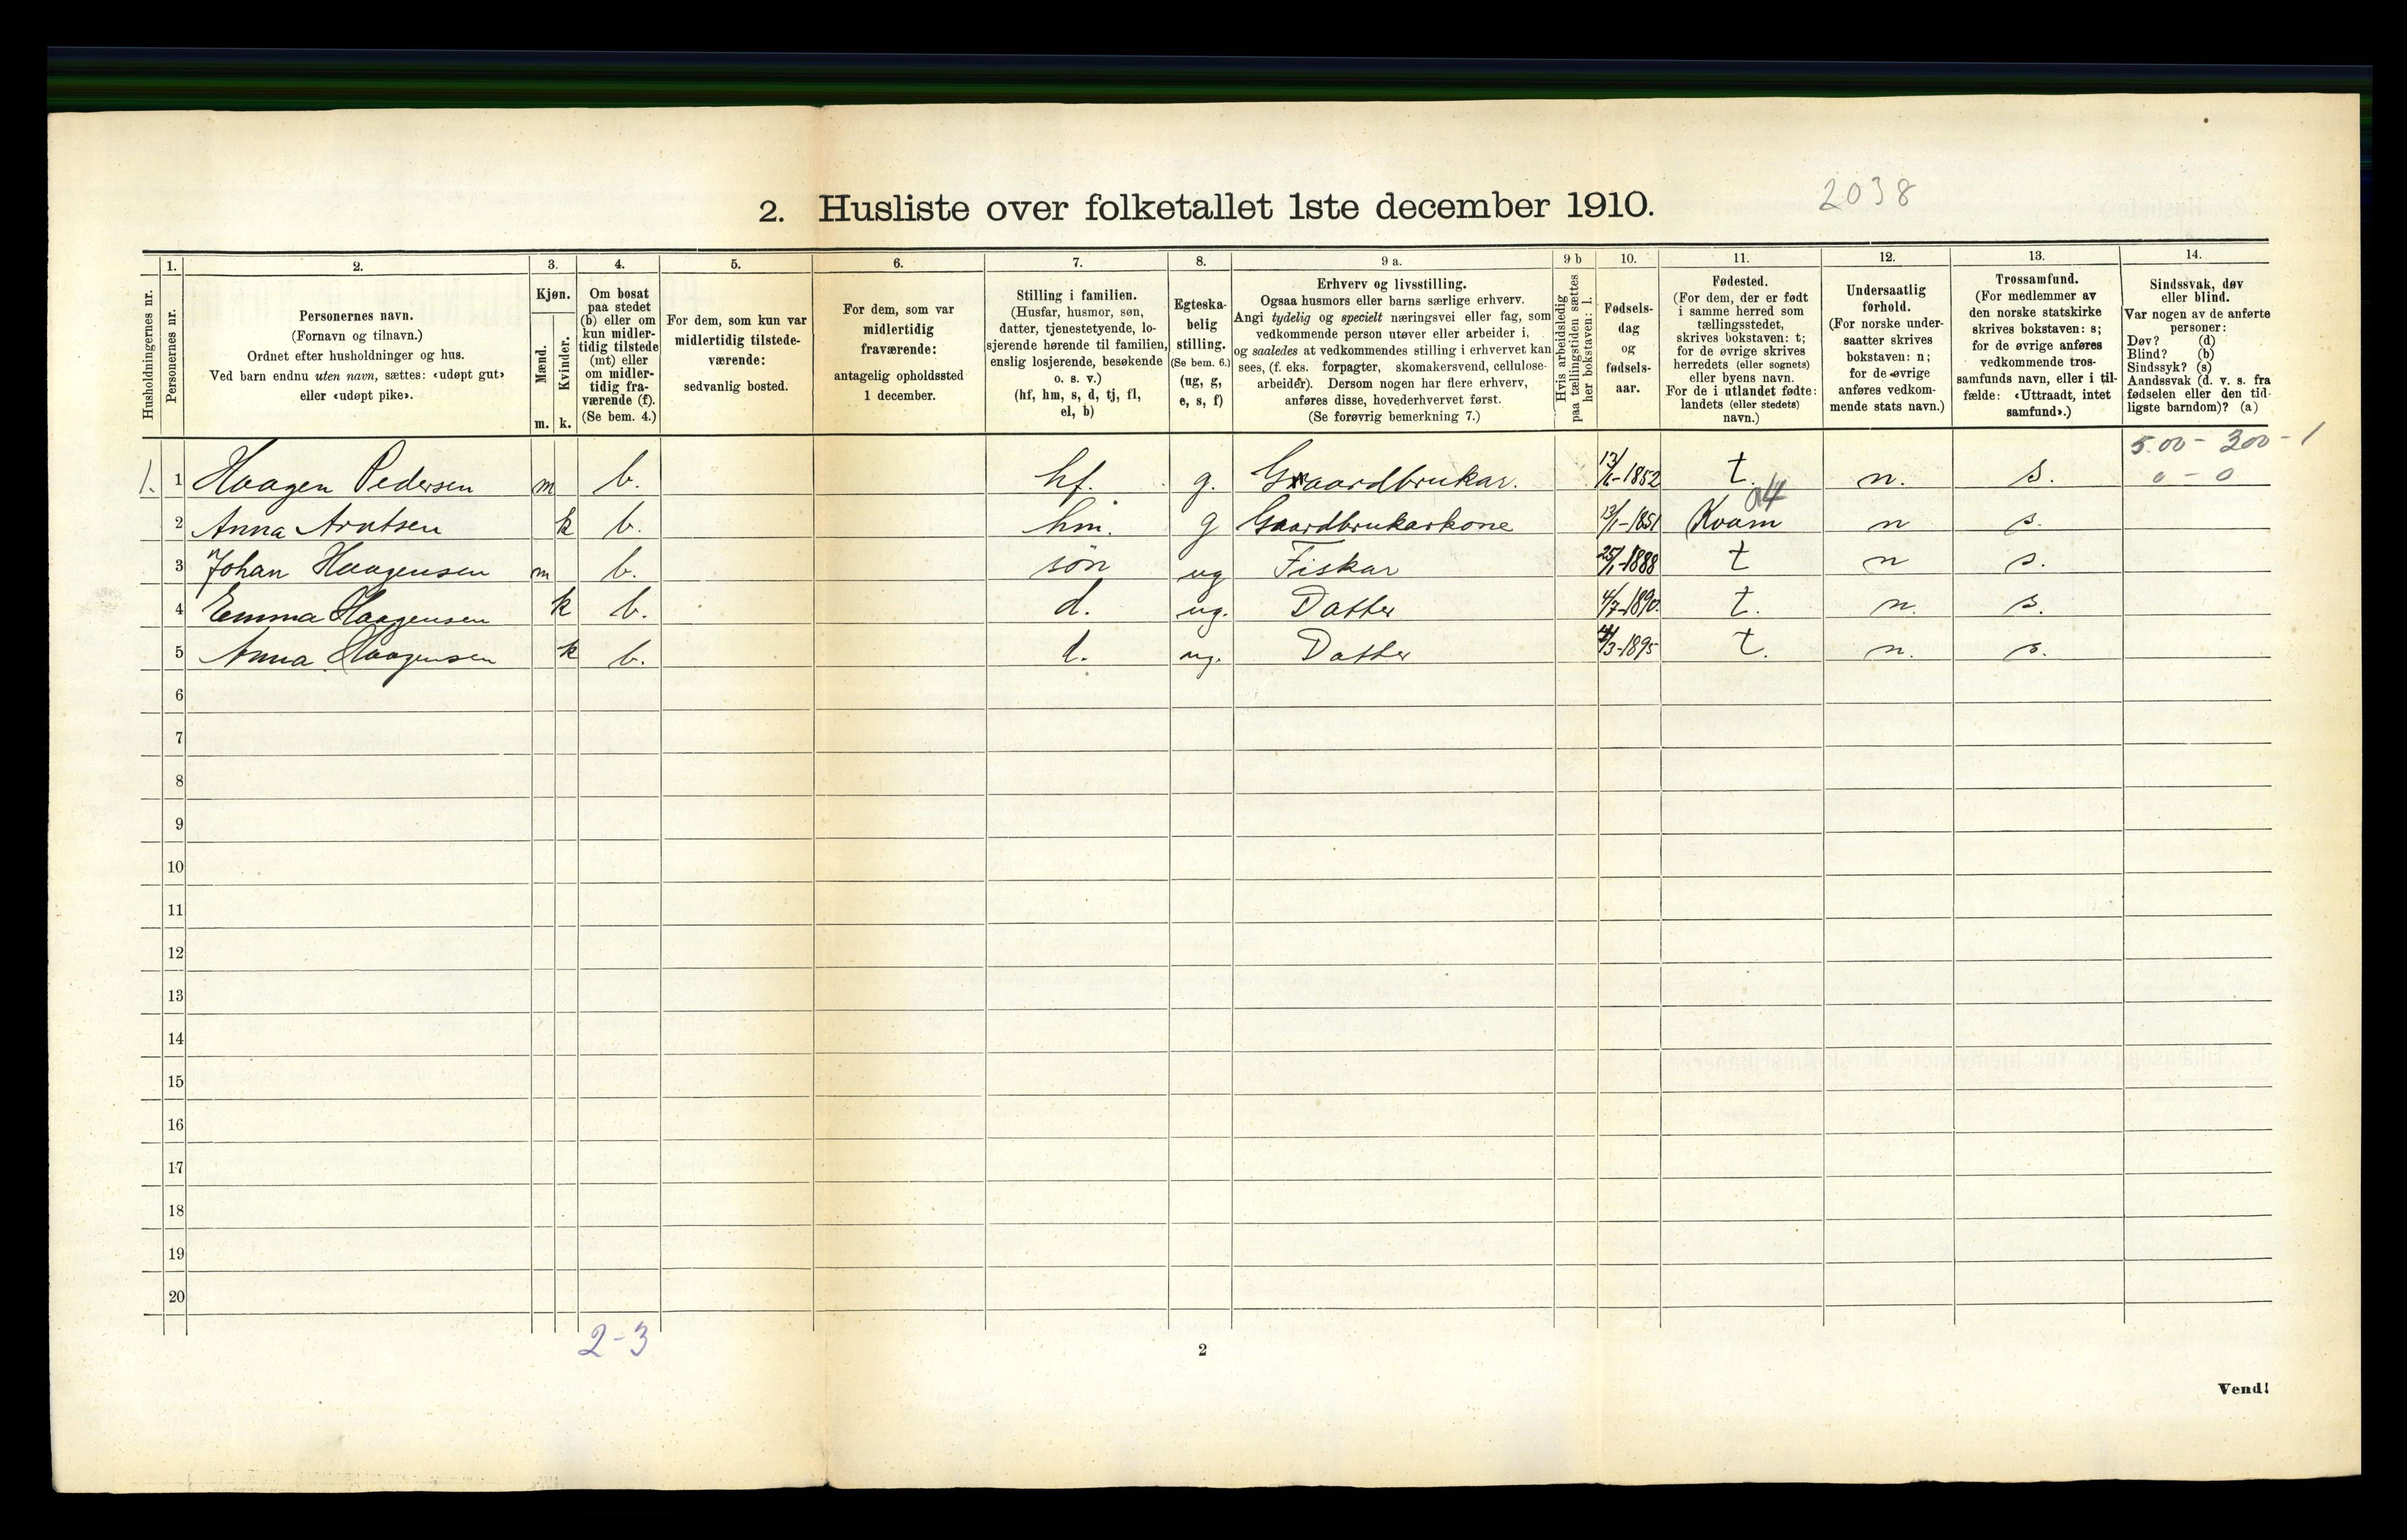 2038
2. Husliste over folketallet 1ste december 1910.
Husholdningernes nr.
1.
Personernes nr.
2.
Personernes navn.
(Fornavn og tilnavn.)
Ordnet efter husholdninger og hus.
Ved barn endnu uten navn, sættes: «udøpt gut»
eller «udøpt pike».
3.
Kjøn.
Mænd.
Kvinder.
m. k.
4.
Om bosat
paa stedet
(b) eller om
kun midler-
tidig tilstede
(mt) eller
om midler-
tidig fra-
værende (f).
(Se bem. 4.)
5.
For dem, som kun var
midlertidig tilstede-
værende:
sedvanlig bosted.
6.
For dem, som var
midlertidig
fraværende:
antagelig opholdssted
1 december.
7.
Stilling i familien.
(Husfar, husmor, søn,
datter, tjenestetyende, lo-
sjerende hørende til familien,
enslig losjerende, besøkende
o. s. v.)
(hf, hm, s, d, tj, fl,
el, b)
8.
Egteska-
belig
stilling.
(Se bem. 6.)
(ug, g,
e, s, f)
9 a.
Erhverv og livsstilling.
Ogsaa husmors eller barns særlige erhverv.
Angi tydelig og specielt næringsvei eller fag, som
vedkommende person utøver eller arbeider i,
og saaledes at vedkommendes stilling i erhvervet kan
sees, (f. eks. forpagter, skomakersvend, cellulose-
arbeider). Dersom nogen har flere erhverv,
anføres disse, hovederhvervet først.
(Se forøvrig bemerkning 7.)
9 b
Hvis arbeidsledig
paa tællingstiden sættes
her bokstaven: l.
10.
Fødsels-
dag
og
fødsels-
aar.
11.
Fødested.
(For dem, der er født
i samme herred som
tællingsstedet,
skrives bokstaven: t;
for de øvrige skrives
herredets (eller sognets)
eller byens navn.
For de i utlandet fødte:
landets (eller stedets)
navn.)
12.
Undersaatlig
forhold.
(For norske under-
saatter skrives
bokstaven: n;
for de øvrige
anføres vedkom-
mende stats navn.)
13.
Trossamfund.
(For medlemmer av
den norske statskirke
skrives bokstaven: s;
for de øvrige anføres
vedkommende tros-
samfunds navn, eller i til-
fælde: «Uttraadt, intet
samfund».)
14.
Sindssvak, døv
eller blind.
Var nogen av de anførte
personer:
Døv? (d)
Blind? (b)
Sindssyk? (s)
Aandssvak (d. v. s. fra
fødselen eller den tid-
ligste barndom)? (a)
5.00 - 300 - 1
1. 1 Haagen Pedersen m b. hf. g. Gaardbrukar. 1852 t. n. s. 0 - 0
2 Anna Arntsen k b. hm. g Gaardbrukarkone 13/1-1851 Kvam n s.
3 Johan Haagensen m b. søn ug Fiskar 25/1-1888 t n s.
4 Emma Haagensen k b. d. ug. Datter 4/7-1890. t. n. s.
5 Anna Haagensen k b. d. ug. Datter 1895 t. n. s.
6
7
8
9
10
11
12
13
14
15
16
17
18
19
20
2-3
2
Vend!